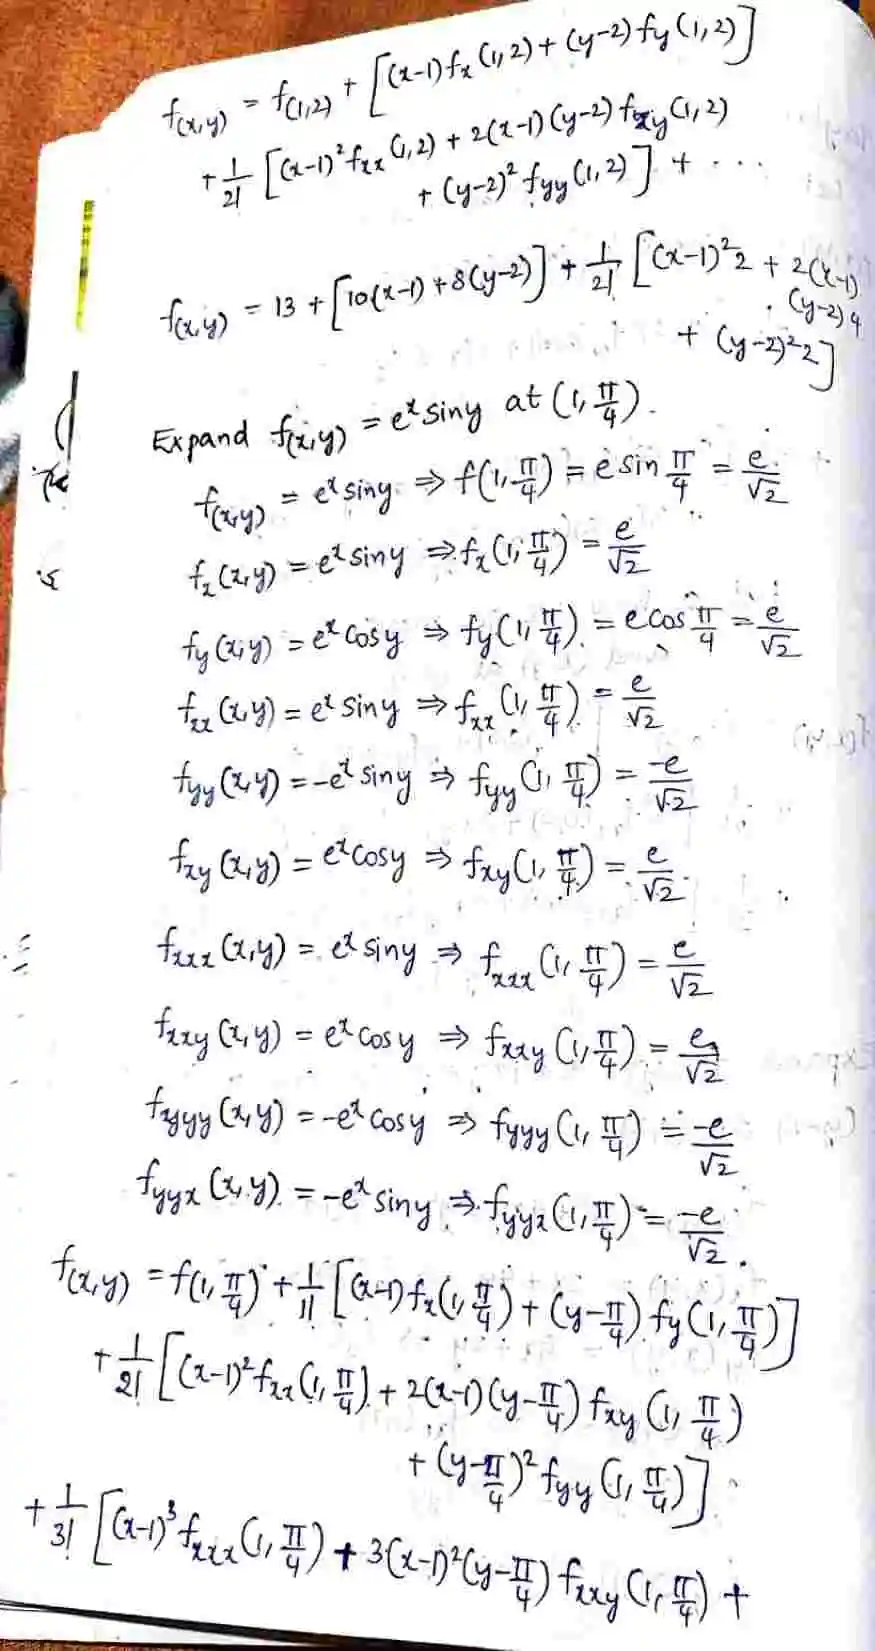 f(x,y) = f(1,2) + [(x-1)fx(1,2) + (y-2)fy(1,2)]
+ 1/2! [(x-1)²fxx(1,2) + 2(x-1)(y-2)fxy(1,2)
+ (y-2)²fyy(1,2)] + ...
f(x,y) = 13 + [10(x-1) + 8(y-2)] + 1/2! [(x-1)²2 + 2(x-1)
. (y-2)4
+ (y-2)²2]
Expand f(x,y) = eˣsiny at (1, π/4).
f(x,y) = eˣsiny ⇒ f(1, π/4) = e sin π/4 = e/√2
fx(x,y) = eˣsiny ⇒ fx(1, π/4) = e/√2
fy(x,y) = eˣcosy ⇒ fy(1, π/4) = e cos π/4 = e/√2
fxx(x,y) = eˣsiny ⇒ fxx(1, π/4) = e/√2
fyy(x,y) = -eˣsiny ⇒ fyy(1, π/4) = -e/√2
fxy(x,y) = eˣcosy ⇒ fxy(1, π/4) = e/√2
fxxx(x,y) = eˣsiny ⇒ fxxx(1, π/4) = e/√2
fxxy(x,y) = eˣcosy ⇒ fxxy(1, π/4) = e/√2
fyyy(x,y) = -eˣcosy ⇒ fyyy(1, π/4) = -e/√2
fyyx(x,y) = -eˣsiny ⇒ fyyx(1, π/4) = -e/√2.
f(x,y) = f(1, π/4) + 1/1! [(x-1)fx(1, π/4) + (y-π/4)fy(1, π/4)]
+ 1/2! [(x-1)²fxx(1, π/4) + 2(x-1)(y-π/4)fxy(1, π/4)
+ (y-π/4)²fyy(1, π/4)]
+ 1/3! [(x-1)³fxxx(1, π/4) + 3(x-1)²(y-π/4)fxxy(1, π/4) +